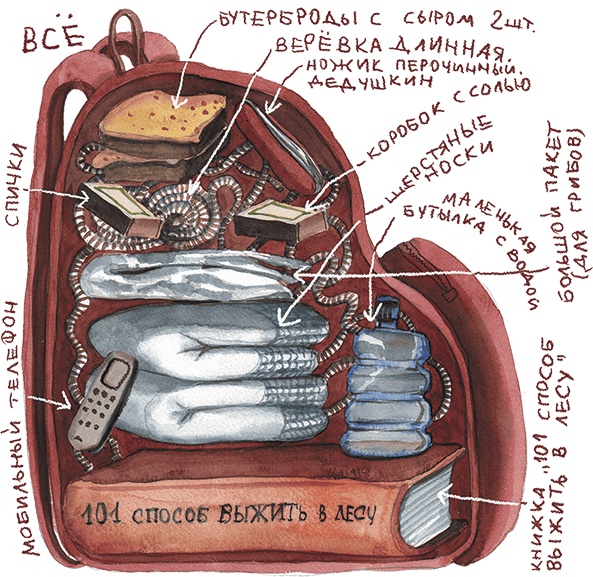 ВСЁ
БУТЕРБРОДЫ С СЫРОМ 2 ШТ.
ВЕРЁВКА ДЛИННАЯ
НОЖИК ПЕРОЧИННЫЙ.
ДЕДУШКИН
КОРОБОК С СОЛЬЮ
ШЕРСТЯНЫЕ
НОСКИ
МАЛЕНЬКАЯ
БУТЫЛКА С ВОДОЙ
БОЛЬШОЙ ПАКЕТ
(ДЛЯ ГРИБОВ)
СПИЧКИ
МОБИЛЬНЫЙ ТЕЛЕФОН
КНИЖКА "101 СПОСОБ
ВЫЖИТЬ В ЛЕСУ"
101 СПОСОБ ВЫЖИТЬ В ЛЕСУ